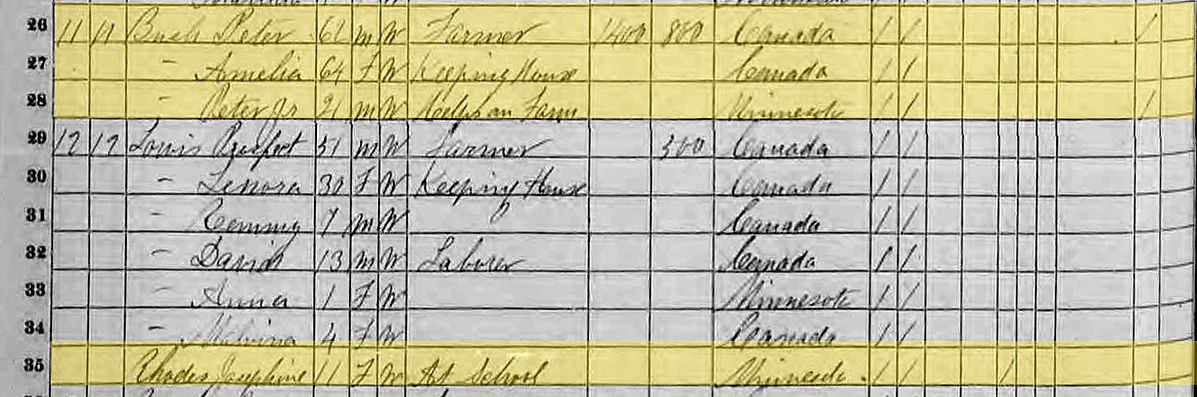 26 11 11 Peter 61 m W Farmer 1400 800 Canada / / /
27 " Amelia 64 F W Keeping House Canada / /
28 " Peter Jr 21 m W Helps on Farm Minnesota / / /
29 12 12 Louis 31 m W Farmer 300 Canada / /
30 " Lenora 30 F W Keeping House Canada / /
31 " 7 m W Canada / /
32 " David 13 m W Laborer Canada / /
33 " Anna 1 F W Minnesota / /
34 " Malvina 4 F W Canada / /
35 Rhodes Josephine 11 F W At School Minnesota / / /